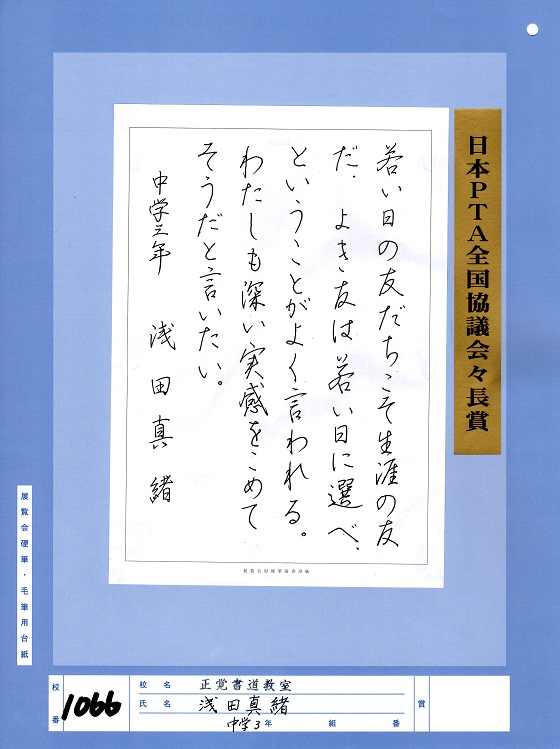 日本PTA全国協議会々長賞
若い日の友だちこそ生涯の友
だ．よき友は若い日に選べ．
ということがよく言われる。
わたしも深い実感をこめて
そうだと言いたい。
中学三年　浅田真緒
展覧会用硬筆習書用紙
展覧会硬筆・毛筆用台紙
校番 1066
校名 正覚書道教室
氏名 浅田真緒
中学3年 組 番
賞